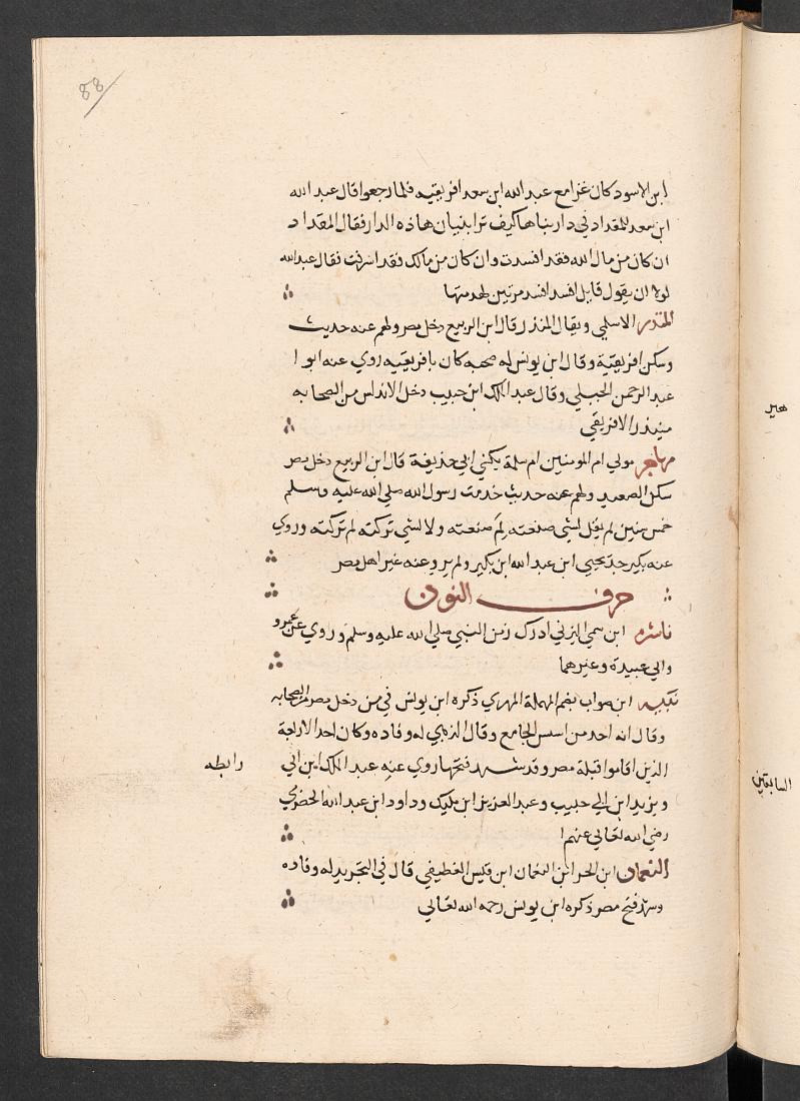 88
ابن الاسود كان غزا مع عبد الله ابن سعد افريقيه فلما رجعوا قال عبد الله
ابن سعد للمقداد في دار بناها كيف ترا بنيان هاذه الدار فقال المقداد
ان كان من مال الله فقد افسدت وان كان من مالك فقد اسرفت فقال عبد الله
لولا ان يقول قايل افسد افسد مرتين لهدمتها
المنذر الاسلمي ويقال المنذر قال ابن الربيع دخل مصر ولهم عنه حديث
وسكن افريقية وقال ابن يونس له صحبه كان بافريقيه روي عنه ابوا
عبد الرحمن الحبلي وقال عبد الملك ابن حبيب دخل الاندلس من الصحابه
منيذر الافريقي
مهاجر مولي ام المومنين ام سلمة يكني ابي حذيفة قال ابن الربيع دخل مصر
سكن الصعيد ولهم عنه حديث خدمت رسول الله صلي الله عليه وسلم
خمس سنين لم يقل لشي صنعته لم صنعته ولا لشي تركته لم تركته وروي
عنه بكير جد يحيي ابن عبد الله ابن بكير ولم يرو عنه غير اهل مصر
حرف النون
ناشره ابن سمي اليزني ادرك زمن النبي صلي الله عليه وسلم وروي عن عمرو
وابي عبيدة وغيرهما
ابن صواب بضم المهملة المهري ذكره ابن يونس في من دخل مصر من الصحابه
وقال انه احد من اسس الجامع وقال الذهبي له وفاده وكان احد الاربعة
الذين اقاموا قبلة مصر وقد شهد فتحها روي عنه عبد الملك ابن ابي رابطه
ويزيد ابن ابي حبيب وعبد العزيز ابن مليك وداود ابن عبد الله الحضرمي
رضي الله تعالي عنهم ا
النعمان ابن الحر ابن النعمان ابن قيس الغطيفي قال في التجريد له وفاده
وشهد فتح مصر ذكره ابن يونس رحمه الله تعالي
السابقين